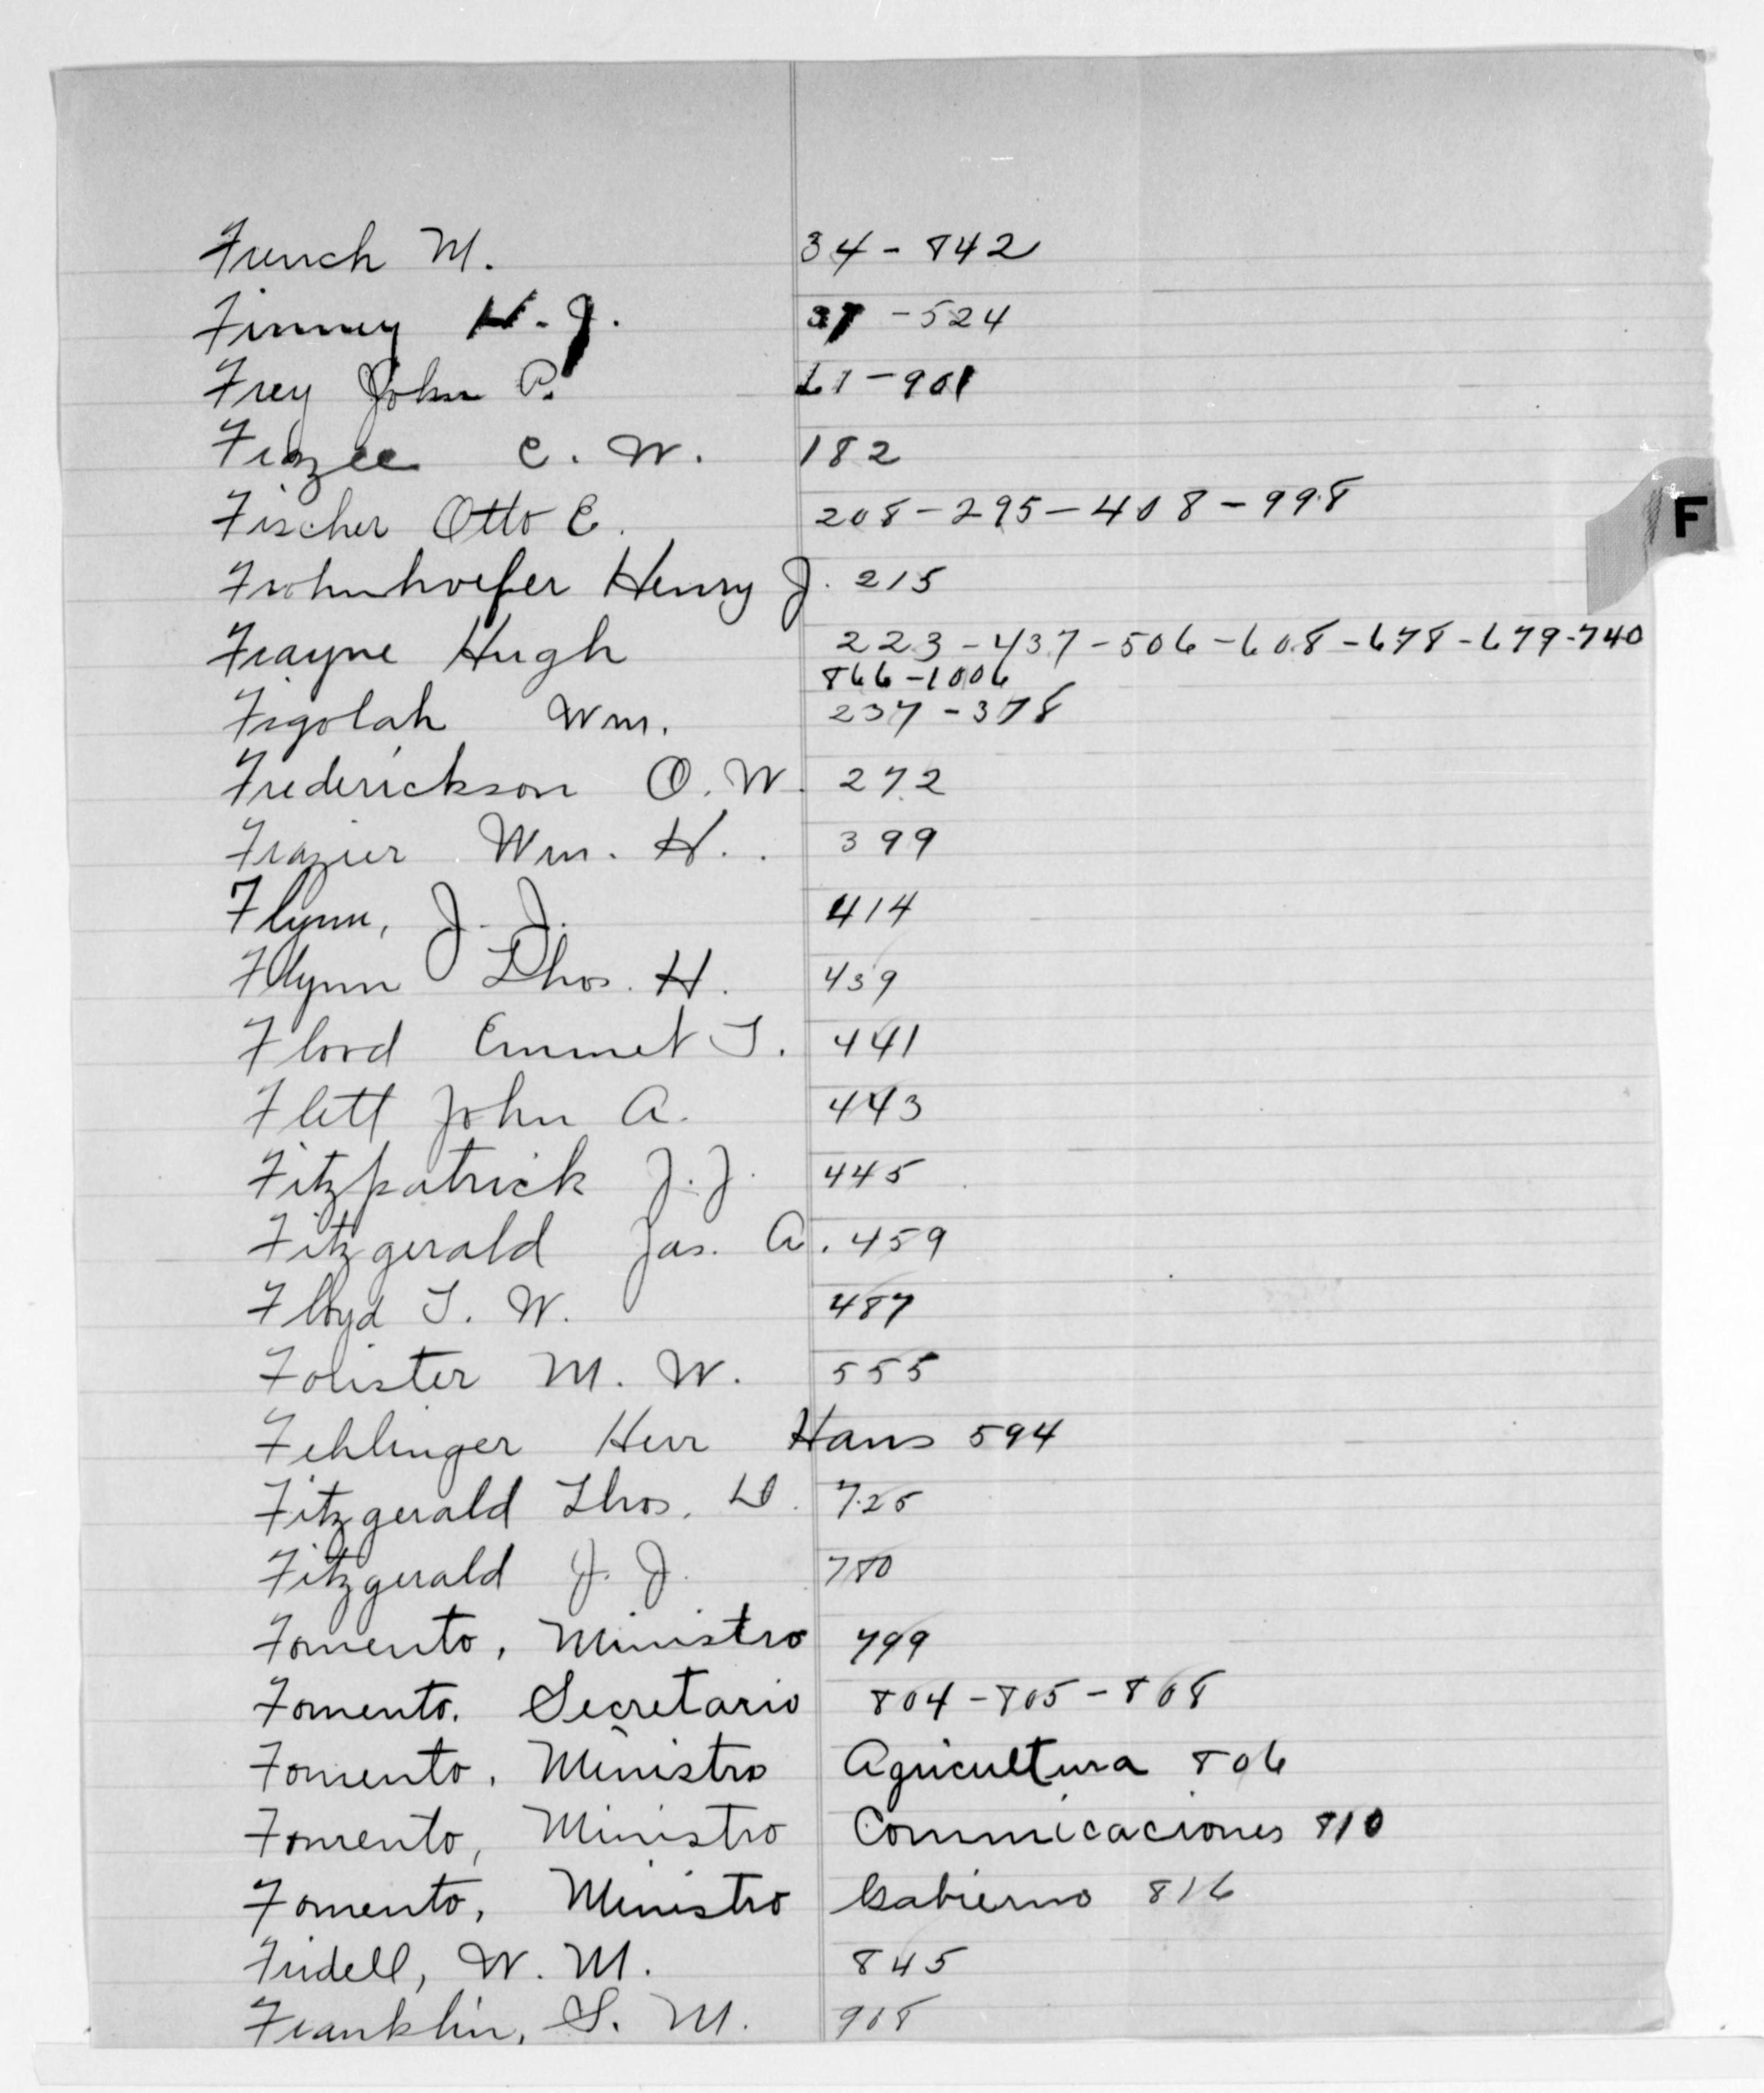 French M. 34 - 842
Finney H. J. 37 - 524
Frey John P. 61 - 901
Frazee C. W. 182
Fischer Otto E. 208 - 295 - 408 - 998
F
Frohnhoefer Henry J. 215
Frayne Hugh 223 - 437 - 506 - 608 - 678 - 679 - 740
866 - 1006
Figolah Wm. 237 - 378
Frederickson O. W. 272
Frazier Wm. H. 399
Flynn, J. J. 414
Flynn Thos. H. 439
Flood Emmet T. 441
Flett John A. 443
Fitzpatrick J. J. 445
Fitzgerald Jas. A. 459
Floyd T. W. 487
M. W. 555
Fehlinger Herr Hans 594
Fitzgerald Thos. D. 725
Fitzgerald J. J. 780
Fomento, Ministro 799
Fomento. Secretario 804 - 805 - 808
Fomento, Ministro Agricultura 806
Fomento, Ministro Commicaciones 810
Fomento, Ministro Gabierno 816
Fridell, W. M. 845
Franklin, S. M. 908